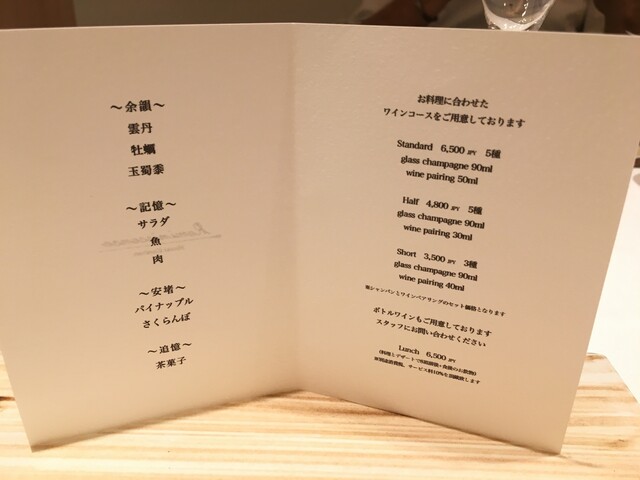 ～余韻～
雲丹
牡蠣
玉蜀黍
～記憶～
サラダ
魚
肉
～安堵～
パイナップル
さくらんぼ
～追憶～
茶菓子
お料理に合わせた
ワインコースをご用意しております
Standard 6,500 JPY 5種
glass champagne 90ml
wine pairing 50ml
Half 4,800 JPY 5種
glass champagne 90ml
wine pairing 30ml
Short 3,500 JPY 3種
glass champagne 90ml
wine pairing 40ml
※シャンパンとワインペアリングのセット価格となります
ボトルワインもご用意しております
スタッフにお問い合わせください
Lunch 6,500 JPY
※別途消費税、サービス料10%を頂戴致します